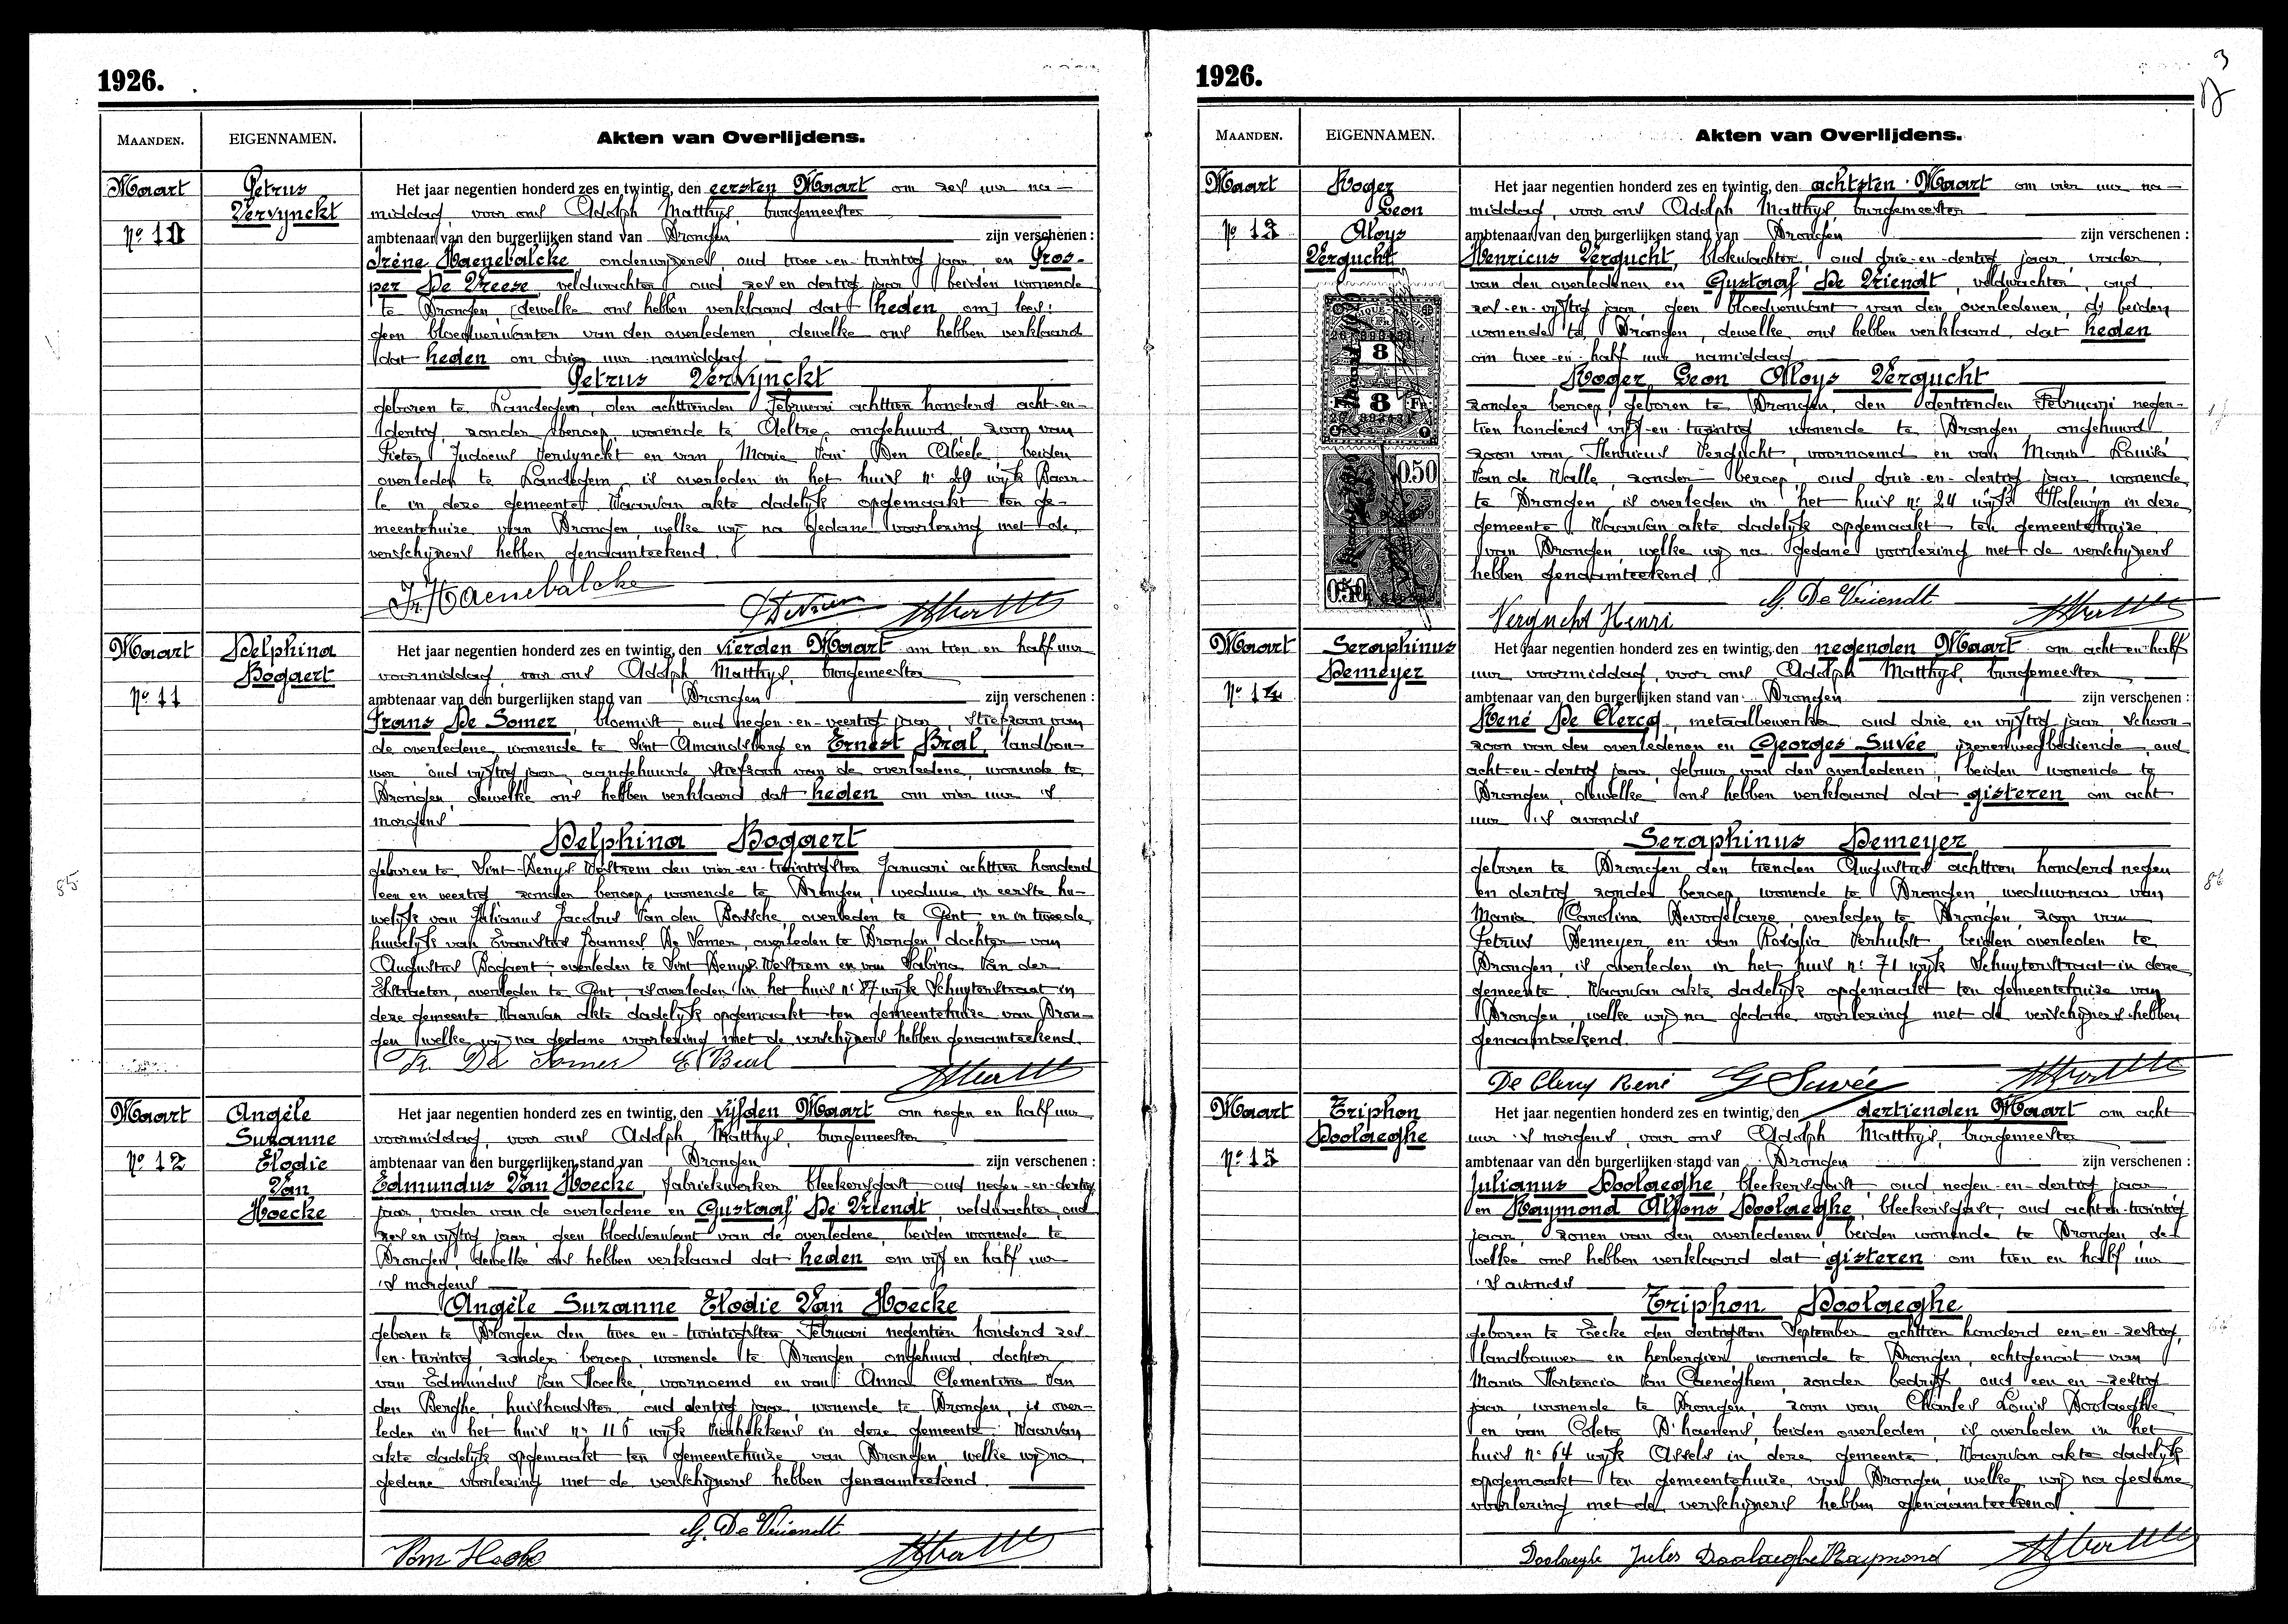 1926.
MAANDEN.
EIGENNAMEN.
Akten van Overlijdens.
Maart
Nº 10
Petrus
Vervynckt
Het jaar negentien honderd zes en twintig, den eersten Maart om zes uur na-
middag, voor ons Adolph Matthys, burgemeester
ambtenaar van den burgerlijken stand van Drongen zijn verschenen :
Irène Haenebalcke onderwijzeres, oud twee-en-twintig jaar, en Pros-
per De Vreese veldwachter oud zes en dertig jaar beiden wonende
te Drongen, [dewelke ons hebben verklaard dat heden om] lees:
geen bloedverwanten van den overledenen, dewelke ons hebben verklaard
dat heden om drie uur namiddag
Petrus Vervynckt
geboren te Landegem, den achttienden Februari achttien honderd acht-en-
dertig, zonder beroep, wonende te Aeltre, ongehuwd, zoon van
Pieter Judocus Vervynckt en van Marie Van Den Abeele, beiden
overleden te Landegem, is overleden in het huis nº 29 wijk Baar-
le in deze gemeente. Waarvan akte dadelijk opgemaakt ten ge-
meentehuize van Drongen, welke wij na gedane voorlezing met de
verschijners hebben genaamteekend.
Ir. Haenebalcke
Maart
Nº 11
Delphina
Bogaert
Het jaar negentien honderd zes en twintig, den vierden Maart om tien en half uur
voormiddag, voor ons Adolph Matthys, burgemeester
ambtenaar van den burgerlijken stand van Drongen zijn verschenen :
Frans De Somer, bloemist oud negen-en-veertig jaar, stiefzoon van
de overledene, wonende te Sint Amandsberg en Ernest Bral, landbou-
wer, oud vijftig jaar, aangehuwde stiefzoon van de overledene, wonende te
Drongen, dewelke ons hebben verklaard dat heden om vier uur 's
morgens
Delphina Bogaert
geboren te Sint-Denys-Westrem den vier-en-twintigsten Januari achttien honderd
een en veertig zonder beroep, wonende te Drongen, weduwe in eerste hu-
welijk van Julianus Jacobus Van den Bossche, overleden te Gent, en in tweede
huwelijk van Evaristus Joannes De Somer, overleden te Drongen, dochter van
Augustus Bogaert, overleden te Sint Denys-Westrem en van Sabina Van der
overleden te Gent, is overleden in het huis nº 87 wijk Schuytenstraat in
deze gemeente Waarvan akte dadelijk opgemaakt ten gemeentehuize van Dron-
gen welke wij na gedane voorlezing met de verschijners hebben genaamteekend.
Fr. De Somer E. Bral
Maart
Nº 12
Angèle
Suzanne
Elodie
Van
Hoecke
Het jaar negentien honderd zes en twintig, den vijfden Maart om negen en half uur
voormiddag, voor ons Adolph Matthys, burgemeester
ambtenaar van den burgerlijken stand van Drongen zijn verschenen :
Edmundus Van Hoecke, fabriekwerker bleekersgast oud negen-en-dertig
jaar, vader van de overledene en Gustaaf De Vriendt, veldwachter, oud
zes en vijftig jaar, geen bloedverwant van de overledene, beiden wonende te
Drongen, dewelke ons hebben verklaard dat heden om vijf en half uur
's morgens
Angèle Suzanne Elodie Van Hoecke
geboren te Drongen den twee en-twintigsten Februari negentien honderd zes-
en-twintig, zonder beroep, wonende te Drongen, ongehuwd, dochter
van Edmundus Van Hoecke, voornoemd en van Anna Clementina Van
den Berghe, huishoudster oud dertig jaar, wonende te Drongen, is over-
leden in het huis nº 116 wijk in deze gemeente. Waarvan
akte dadelijk opgemaakt ten gemeentehuize van Drongen, welke wij na
gedane voorlezing met de verschijners hebben genaamteekend.
G. De Vriendt
Van Hoecke
1926.
3
MAANDEN.
EIGENNAMEN.
Akten van Overlijdens.
Maart
Nº 13
Roger
Leon
Aloys
Vergucht
8
8
0.50
0.50
Het jaar negentien honderd zes en twintig, den achtsten Maart om vier uur na-
middag, voor ons Adolph Matthys, burgemeester
ambtenaar van den burgerlijken stand van Drongen zijn verschenen :
Henricus Vergucht, blokwachter, oud drie-en-dertig jaar, vader
van den overledenen en Gustaaf De Vriendt, veldwachter, oud
zes-en-vijftig jaar, geen bloedverwant van den overledenen, beiden
wonende te Drongen, dewelke ons hebben verklaard, dat heden
om twee-en-half uur namiddag
Roger Leon Aloys Vergucht
zonder beroep, geboren te Drongen, den dertienden Februari negen-
tien honderd vijf-en-twintig wonende te Drongen ongehuwd
zoon van Henricus Vergucht, voornoemd en van Maria Louisa
Van de Walle, zonder beroep, oud drie-en-dertig jaar, wonende
te Drongen is overleden in het huis nº 24 wijk Halewyn in deze
gemeente. Waarvan akte dadelijk opgemaakt ten gemeentehuize
van Drongen, welke wij na gedane voorlezing met de verschijners
hebben genaamteekend.
G. De Vriendt
Vergucht Henri
Maart
Nº 14
Seraphinus
Demeyer
Het jaar negentien honderd zes en twintig, den negenden Maart om acht en half
uur voormiddag, voor ons Adolph Matthys, burgemeester
ambtenaar van den burgerlijken stand van Drongen zijn verschenen :
René De Clercq, metaalbewerker oud drie en vijftig jaar, schoon-
zoon van den overledenen en Georges Suvée, ijzerenwegbediende, oud
acht-en-dertig jaar, gebuur van den overledenen, beiden wonende te
Drongen, dewelke ons hebben verklaard dat gisteren om acht
uur 's avonds
Seraphinus Demeyer
geboren te Drongen den tienden Augustus achttien honderd negen
en dertig zonder beroep, wonende te Drongen weduwnaar van
Maria Carolina Devogelaere, overleden te Drongen, zoon van
Petrus Demeyer en van Rosalia Verhulst beiden overleden te
Drongen, is overleden in het huis nº 71 wijk Schuytenstraat in deze
gemeente. Waarvan akte dadelijk opgemaakt ten gemeentehuize van
Drongen, welke wij na gedane voorlezing met de verschijners hebben
genaamteekend.
De Clercq René G Suvée
Maart
Nº 15
Triphon
Doolaeghe
Het jaar negentien honderd zes en twintig, den dertienden Maart om acht
uur 's morgens, voor ons Adolph Matthys, burgemeester
ambtenaar van den burgerlijken stand van Drongen zijn verschenen :
Julianus Doolaeghe, bleekersgast, oud negen-en-dertig jaar
en Raymond Alfons Doolaeghe, bleekersgast, oud acht-en-twintig
jaar, zonen van den overledenen beiden wonende te Drongen, de-
welke ons hebben verklaard dat gisteren om tien en half uur
's avonds
Triphon Doolaeghe
geboren te Eecke den dertigsten September achttien honderd een-en-zestig,
landbouwer en herbergier, wonende te Drongen, echtgenoot van
Maria Hortencia Van Caeneghem, zonder bedrijf, oud een en-zestig
jaar, wonende te Drongen, zoon van Charles Louis Doolaeghe
en van Coleta D'haenens, beiden overleden, is overleden in het
huis nº 64 wijk Assels in deze gemeente. Waarvan akte dadelijk
opgemaakt ten gemeentehuize van Drongen welke wij na gedane
voorlezing met de verschijners hebben genaamteekend.
Doolaeghe Jules Doolaeghe Raymond